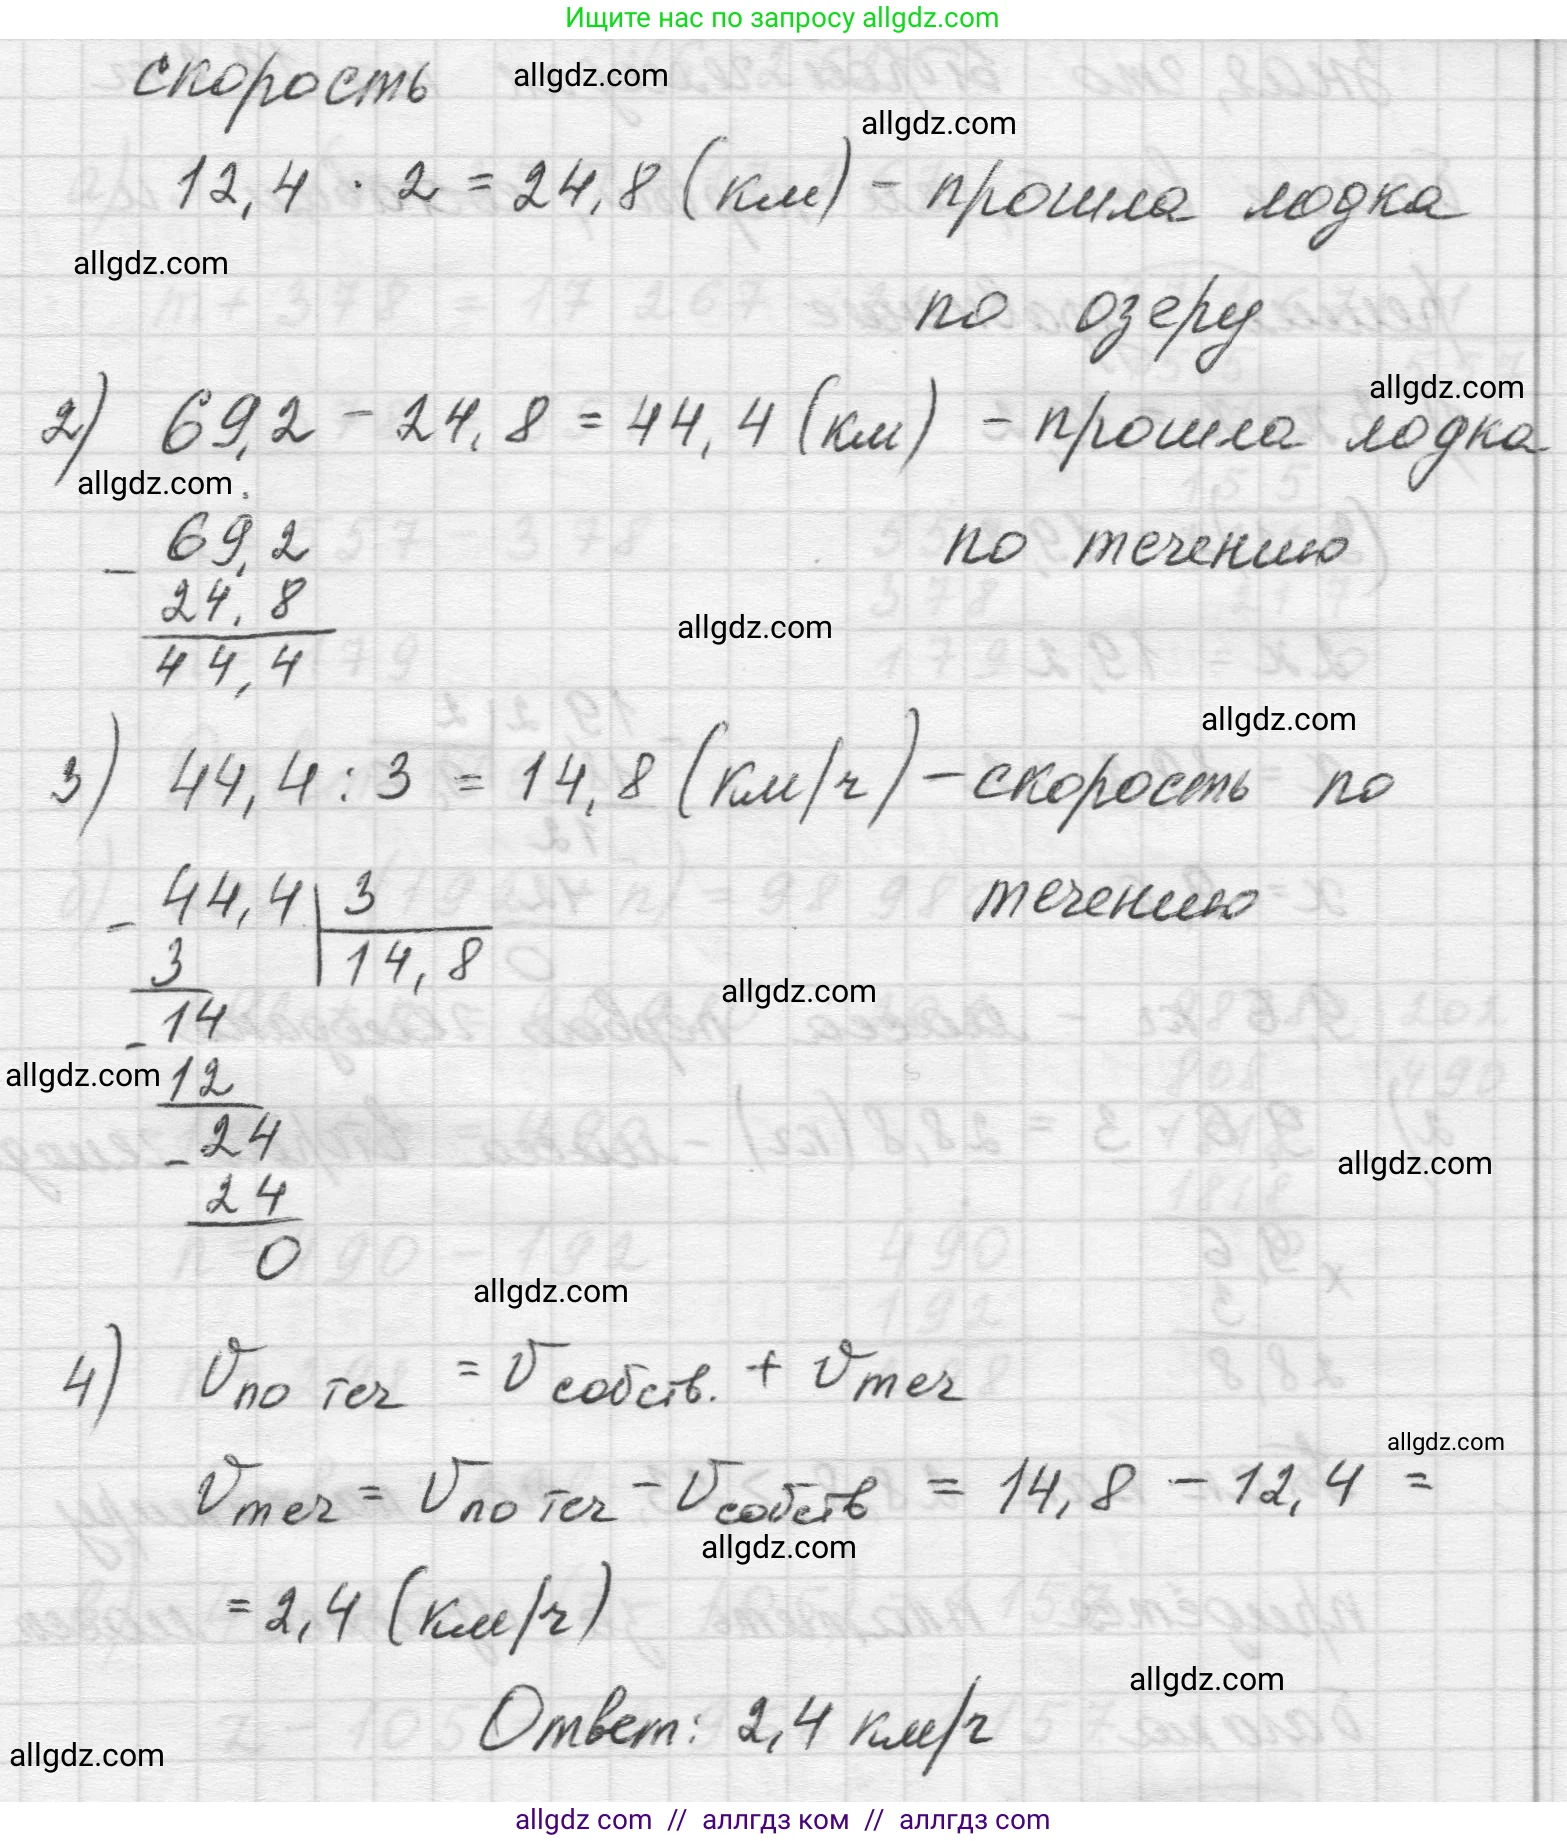 Ищите нас по запросу allgdz.com
скорость allgdz.com
allgdz.com
12,4 · 2 = 24,8 (км) - прошла лодка
allgdz.com
по озеру
allgdz.com
2) 69,2 - 24,8 = 44,4 (км) - прошла лодка
allgdz.com
- 69,2 по течению
24,8
allgdz.com
44,4
allgdz.com
3) 44,4 : 3 = 14,8 (км/ч) - скорость по
- 44,4 | 3 течению
3 14,8
allgdz.com
- 14
allgdz.com
12
- 24
allgdz.com
24
0
allgdz.com
4) v по теч = v собств. + v теч
allgdz.com
v теч = v по теч - v собств = 14,8 - 12,4 =
allgdz.com
= 2,4 (км/ч)
allgdz.com
Ответ: 2,4 км/ч
allgdz.com
allgdz com // аллгдз ком // аллгдз com